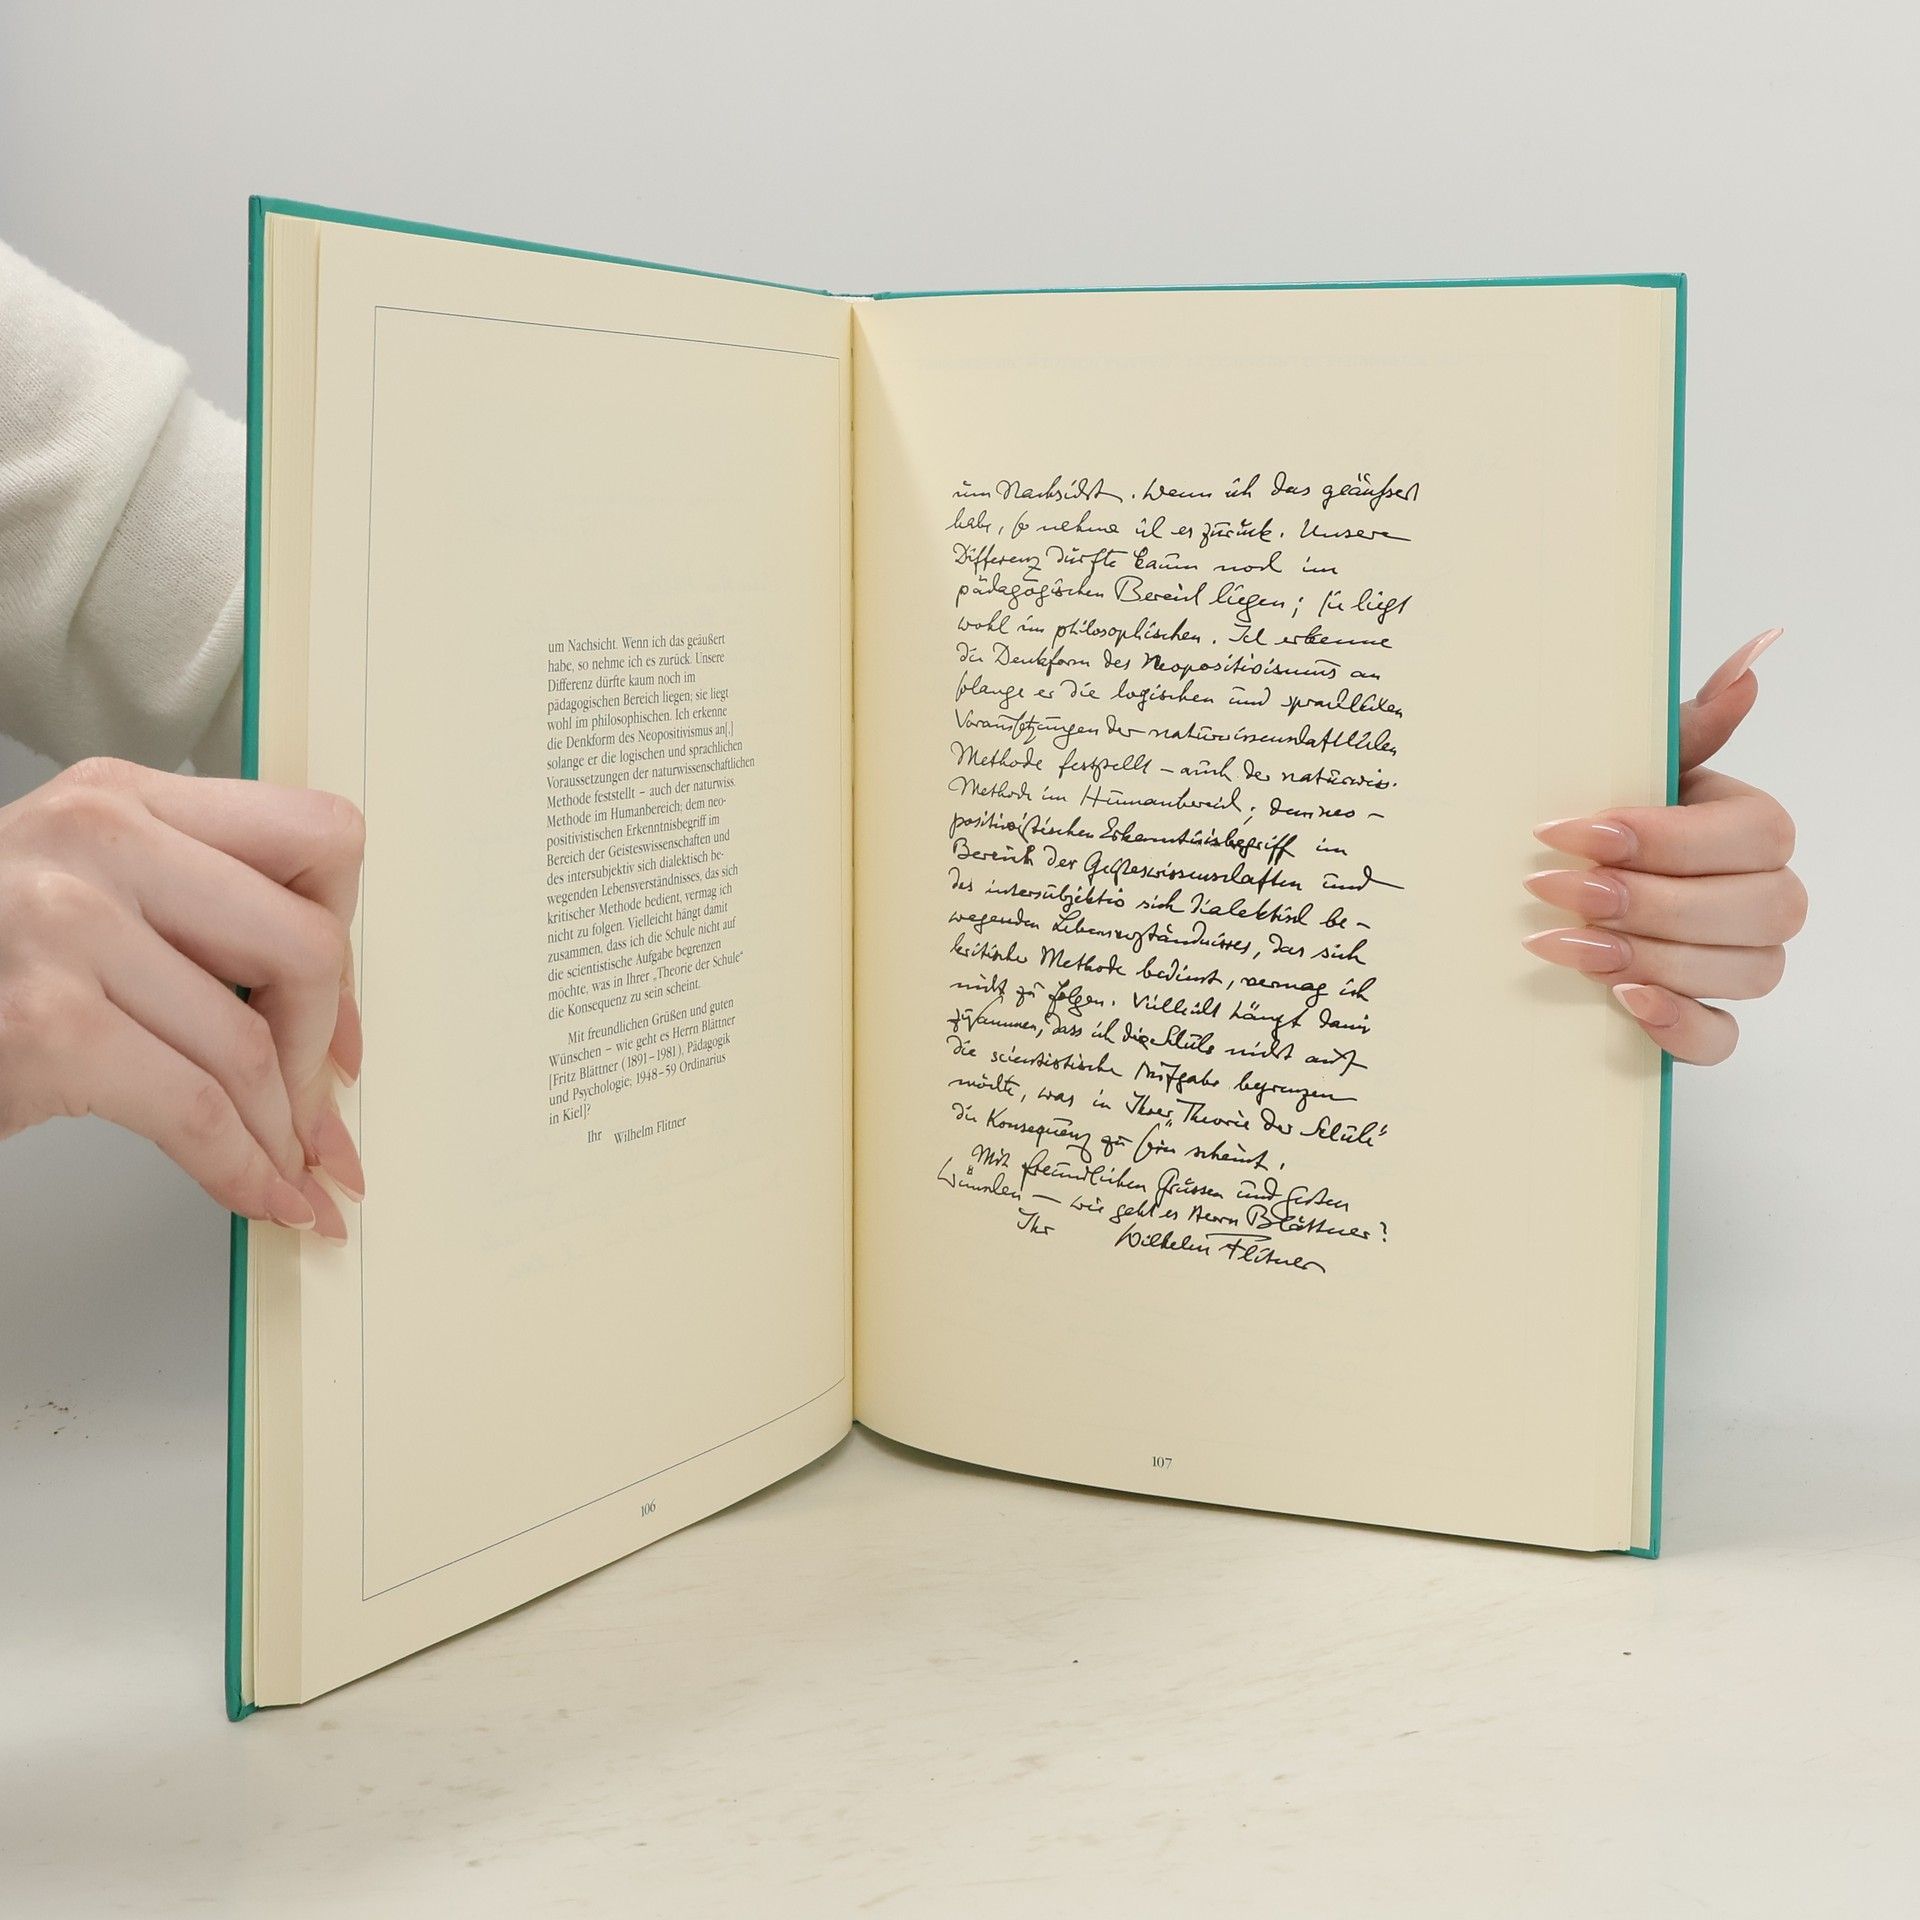 um Nachsicht. Wenn ich das geäußert
habe, so nehme ich es zurück. Unsere
Differenz dürfte kaum noch im
pädagogischen Bereich liegen; sie liegt
wohl im philosophischen. Ich erkenne
die Denkform des Neopositivismus an[.]
solange er die logischen und sprachlichen
Voraussetzungen der naturwissenschaftlichen
Methode feststellt – auch der naturwiss.
Methode im Humanbereich; dem neo-
positivistischen Erkenntnisbegriff im
Bereich der Geisteswissenschaften und
des intersubjektiv sich dialektisch be-
wegenden Lebensverständnisses, das sich
kritischer Methode bedient, vermag ich
nicht zu folgen. Vielleicht hängt damit
zusammen, dass ich die Schule nicht auf
die scientistische Aufgabe begrenzen
möchte, was in Ihrer „Theorie der Schule“
die Konsequenz zu sein scheint.
Mit freundlichen Grüßen und guten
Wünschen – wie geht es Herrn Blättner
[Fritz Blättner (1891–1981), Pädagogik
und Psychologie; 1948–59 Ordinarius
in Kiel]?
Ihr Wilhelm Flitner
106
um Nachsicht. Wenn ich das geäußert
habe, so nehme ich es zurück. Unsere
Differenz dürfte kaum noch im
pädagogischen Bereich liegen; sie liegt
wohl im philosophischen. Ich erkenne
die Denkform des Neopositivismus an
solange er die logischen und sprachlichen
Voraussetzungen der naturwissenschaftlichen
Methode feststellt – auch der naturwiss.
Methode im Humanbereich; dem neo-
positivistischen Erkenntnisbegriff im
Bereich der Geisteswissenschaften und
des intersubjektiv sich dialektisch be-
wegenden Lebensverständnisses, das sich
kritischer Methode bedient, vermag ich
nicht zu folgen. Vielleicht hängt damit
zusammen, dass ich die Schule nicht auf
die scientistische Aufgabe begrenzen
möchte, was in Ihrer „Theorie der Schule“
die Konsequenz zu sein scheint.
Mit freundlichen Grüssen und guten
Wünschen – wie geht es Herrn Blättner?
Ihr Wilhelm Flitner
107